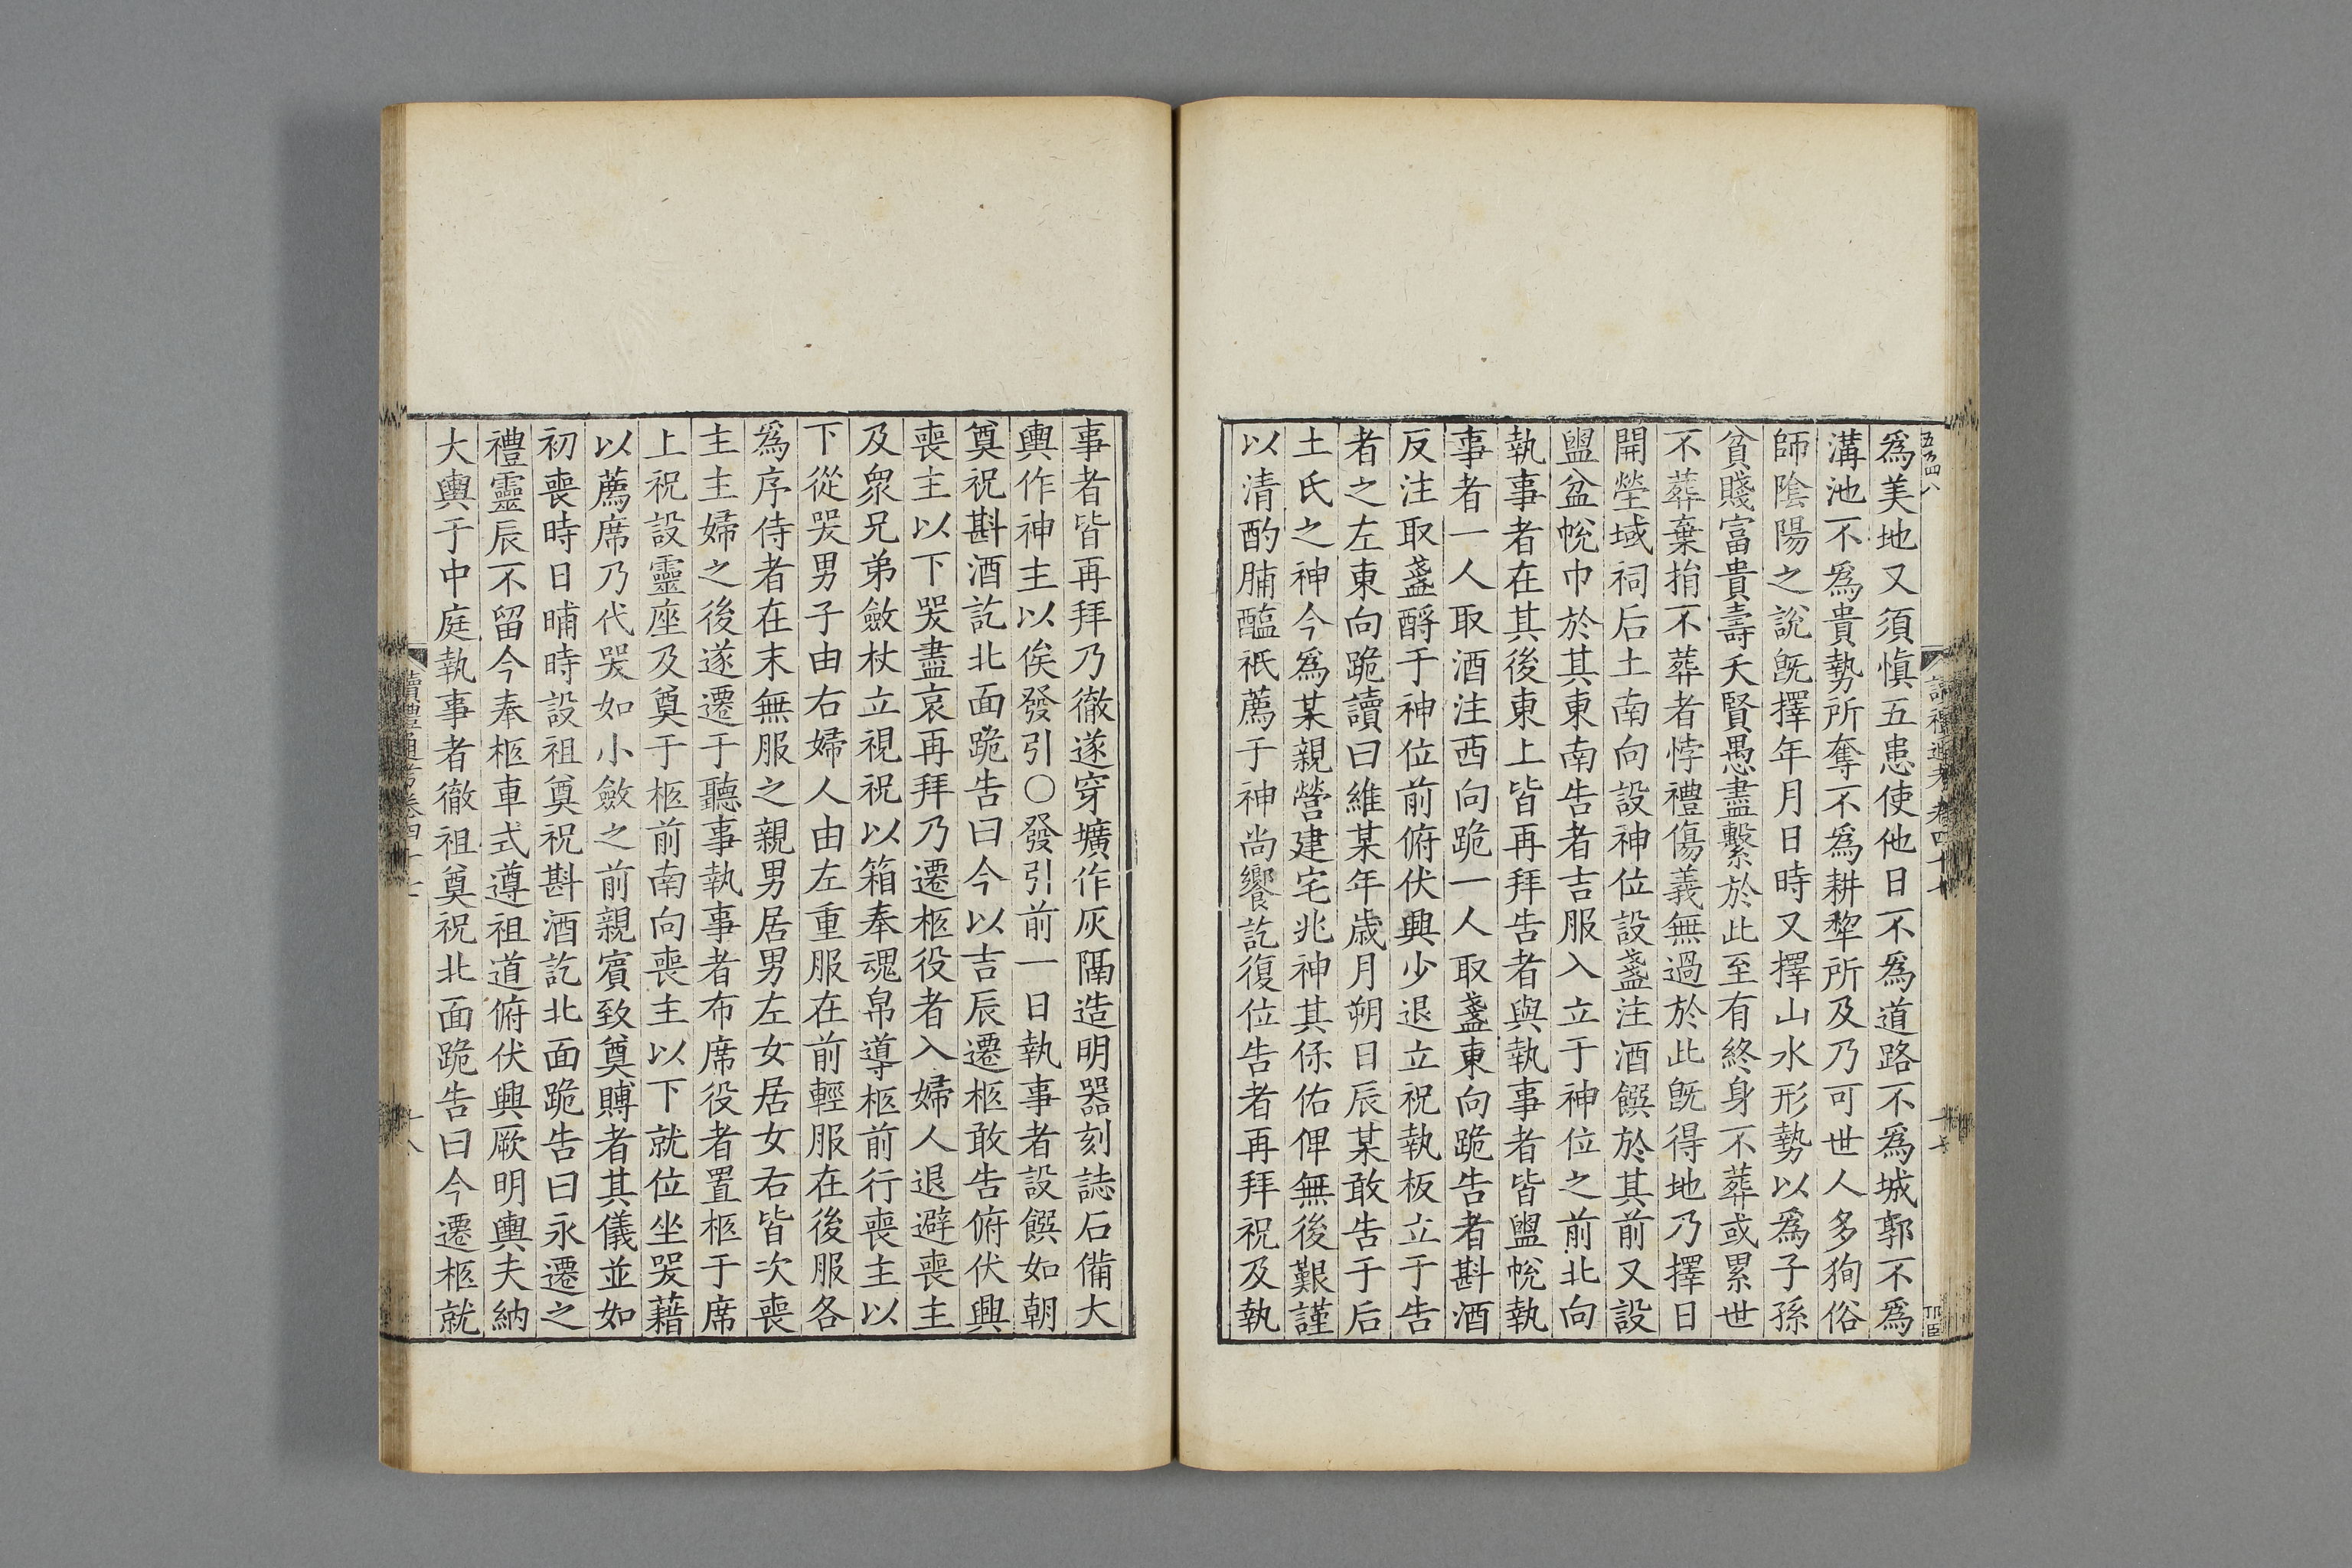 爲美地又須愼五患使他日不爲道路不爲城郭不爲
溝池不爲貴勢所奪不爲耕犂所及乃可世人多狥俗
師陰陽之說旣擇年月日時又擇山水形勢以爲子孫
貧賤富貴壽夭賢愚盡繫於此至有終身不葬或累世
不葬棄捐不葬者悖禮傷義無過於此旣得地乃擇日
開塋域祠后土南向設神位設盞注酒饌於其前又設
盥盆帨巾於其東南告者吉服入立于神位之前北向
執事者在其後東上皆再拜告者與執事者皆盥帨執
事者一人取酒注西向跪一人取盞東向跪告者斟酒
反注取盞酹于神位前俯伏興少退立祝執板立于告
者之左東向跪讀曰維某年歲月朔日辰某敢告于后
土氏之神今爲某親營建宅兆神其保佑俾無後艱謹
以清酌脯醢祇薦于神尚饗訖復位告者再拜祝及執
事者皆再拜乃徹遂穿壙作灰隔造明器刻誌石備大
輿作神主以俟發引○發引前一日執事者設饌如朝
奠祝斟酒訖北面跪告曰今以吉辰遷柩敢告俯伏興
喪主以下哭盡哀再拜乃遷柩役者入婦人退避喪主
及衆兄弟斂杖立視祝以箱奉魂帛導柩前行喪主以
下從哭男子由右婦人由左重服在前輕服在後服各
爲序侍者在末無服之親男居男左女居女右皆次喪
主主婦之後遂遷于聽事執事者布席役者置柩于席
上祝設靈座及奠于柩前南向喪主以下就位坐哭藉
以薦席乃代哭如小斂之前親賓致奠賻者其儀並如
初喪時日晡時設祖奠祝斟酒訖北面跪告曰永遷之
禮靈辰不留今奉柩車式遵祖道俯伏興厥明輿夫納
大輿于中庭執事者徹祖奠祝北面跪告曰今遷柩就
讀禮通考卷四十七
十八